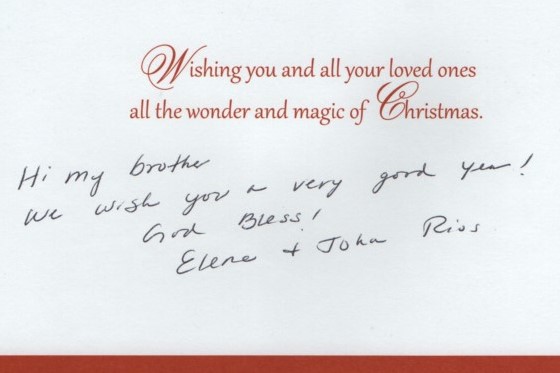 Wishing you and all your loved ones
all the wonder and magic of Christmas.
Hi my brother
we wish you a very good year!
God Bless!
Elene + John Rios